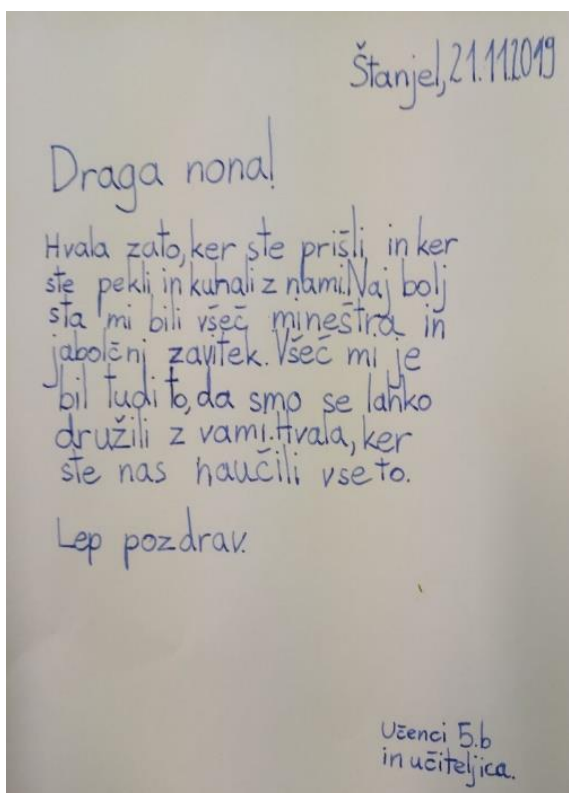 Štanjel, 21.11.2019
Draga nona!
Hvala zato, ker ste prišli in ker
ste pekli in kuhali z nami. Naj bolj
sta mi bili všeč mineštra in
jabolčni zavitek. Všeč mi je
bil tudi to, da smo se lahko
družili z vami. Hvala, ker
ste nas naučili vse to.
Lep pozdrav.
Učenci 5.b
in učiteljica.